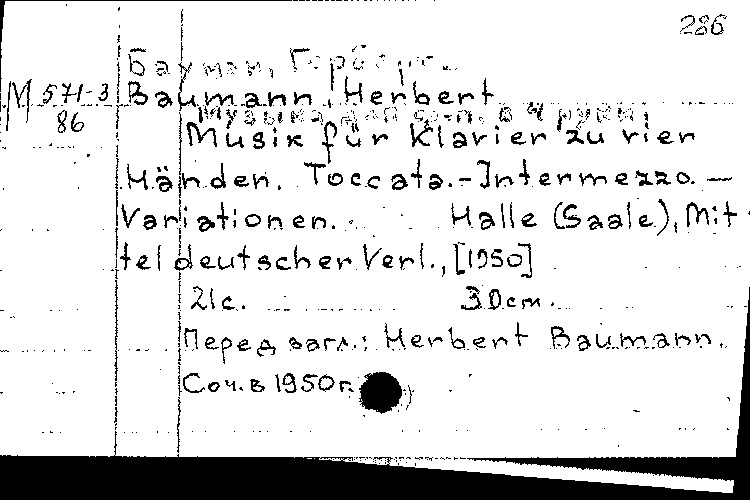 286
Бауман, Герберт.
М 571-3
86
Baumann, Herbert
Музыка для ф.-п. в 4 руки.
Musik für Klavier zu vier
Händen. Toccata.-Intermezzo.—
Variationen. Halle (Saale), Mit-
teldeutscher Verl., [1950]
21с. 30cm.
Перед загл.: Herbert Baumann.
Соч. в 1950г.